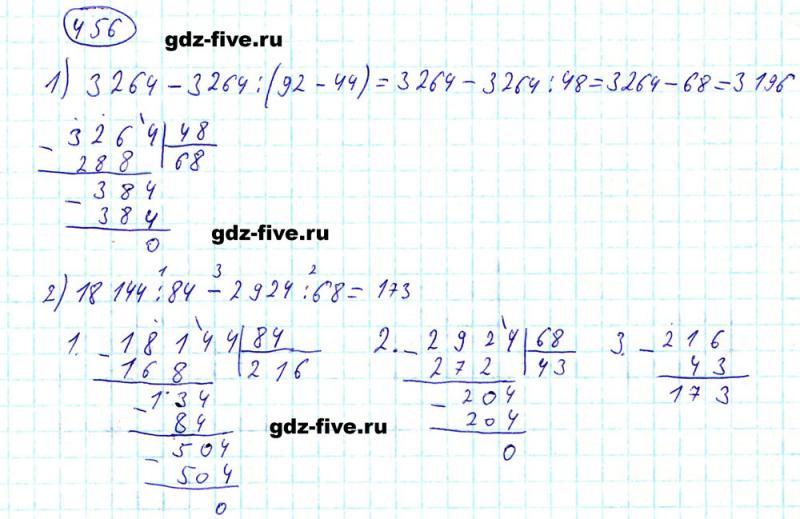 456
gdz-five.ru
1) 3264 - 3264 : (92 - 44) = 3264 - 3264 : 48 = 3264 - 68 = 3196
- 3264 | 48
288 | 68
- 384
384
0
gdz-five.ru
1 3 2
2) 18144 : 84 - 2924 : 68 = 173
1. - 18144 | 84
168 | 216
- 134
84
- 504
504
0
2. - 2924 | 68
272 | 43
- 204
204
0
3. - 216
43
173
gdz-five.ru